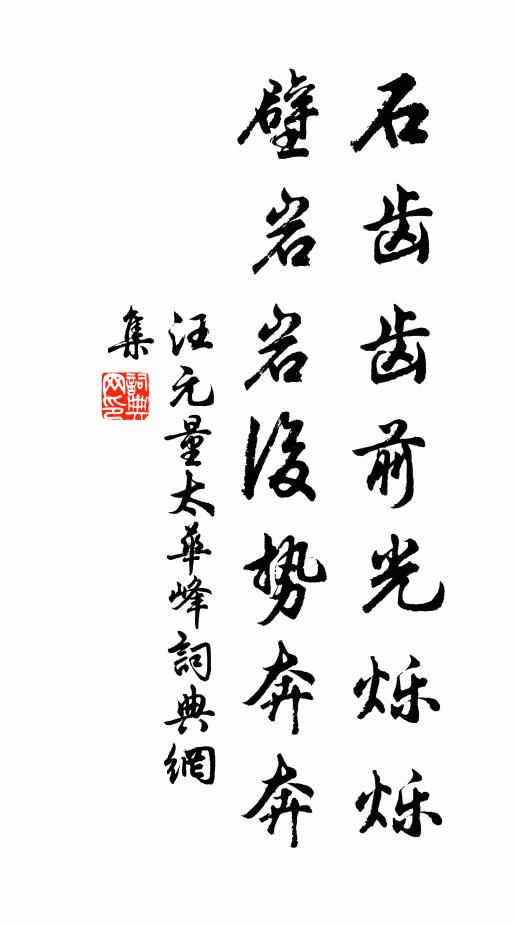 石齿齿前光烁烁
壁岩岩後势奔奔
汪元量太華峰詞典網
集
詞典网印